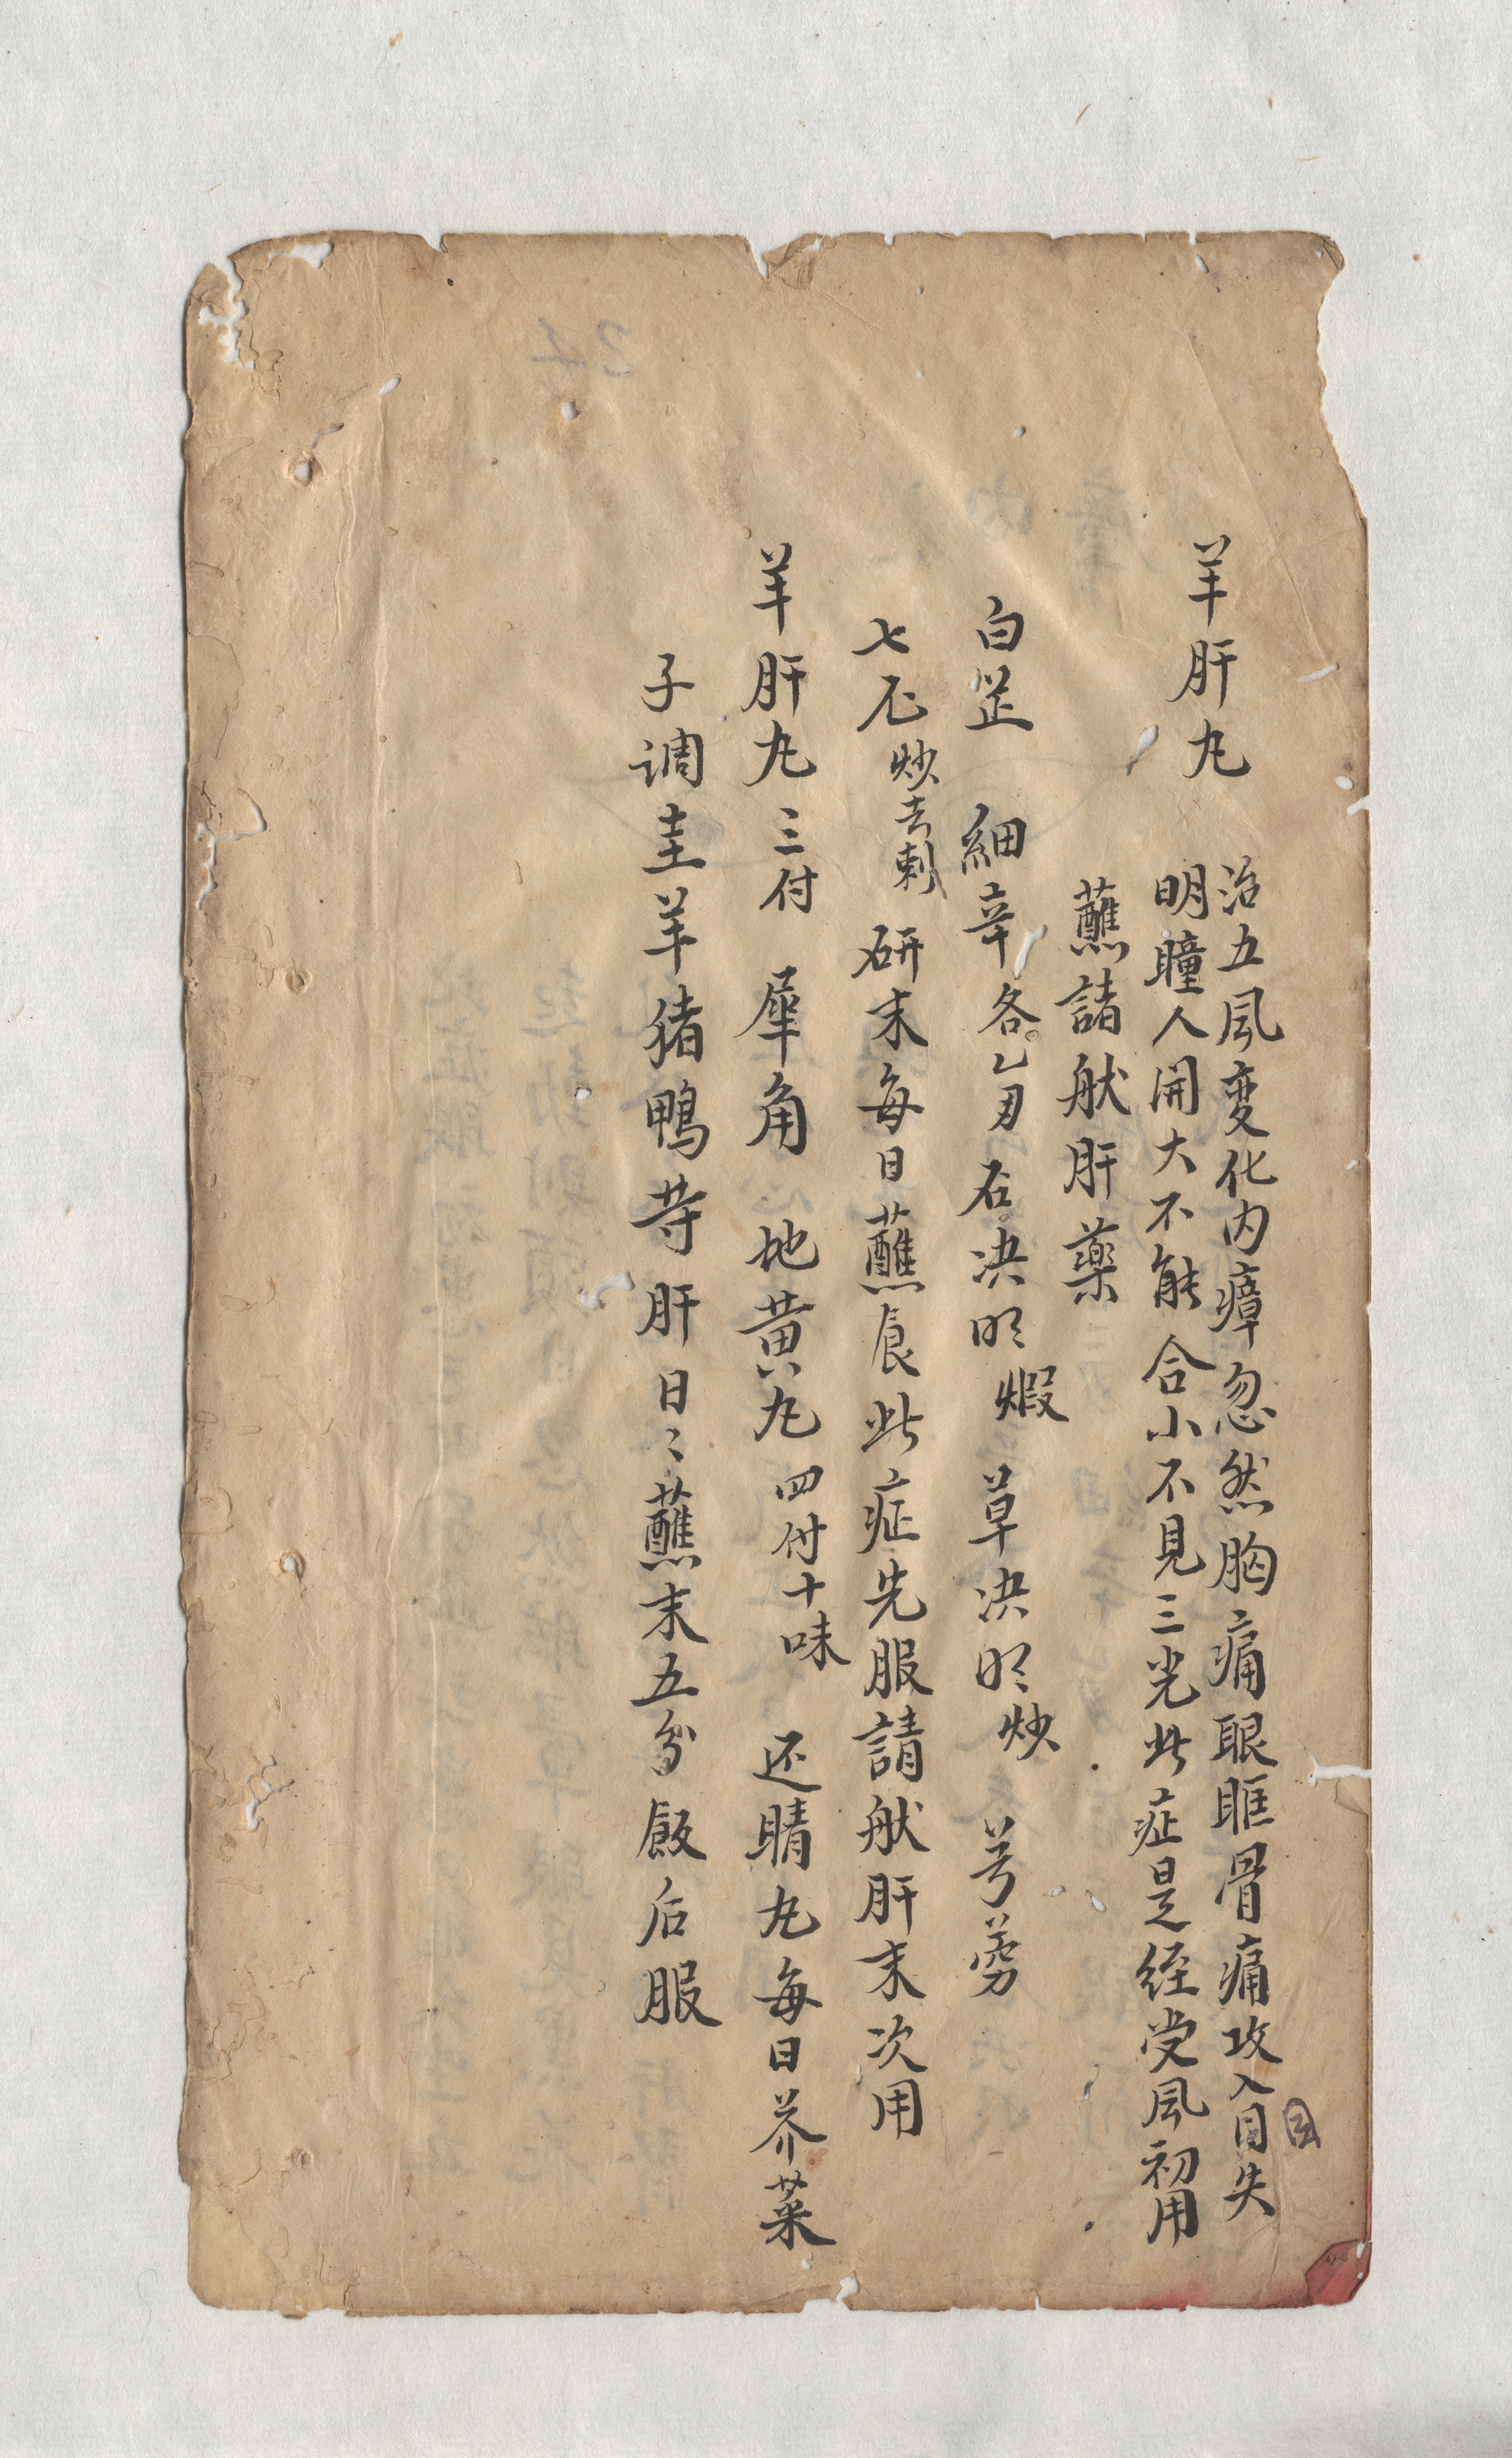 羊肝丸
治五風変化内瘴忽然胸痛眼眶骨痛攻入目失
明瞳人開大不能合小不見三光此症是经受風初用
蘸諸
肝藥
白芷 細辛各乙刄 石决明煆 草决明炒 芎
七 炒去刺 研末每日蘸食此症先服請
肝末次用
羊肝丸三付 犀角地黄丸四付十味 还睛丸每日芥菜
子调
羊猪鴨䓁肝日〻蘸末五分飯后服
34